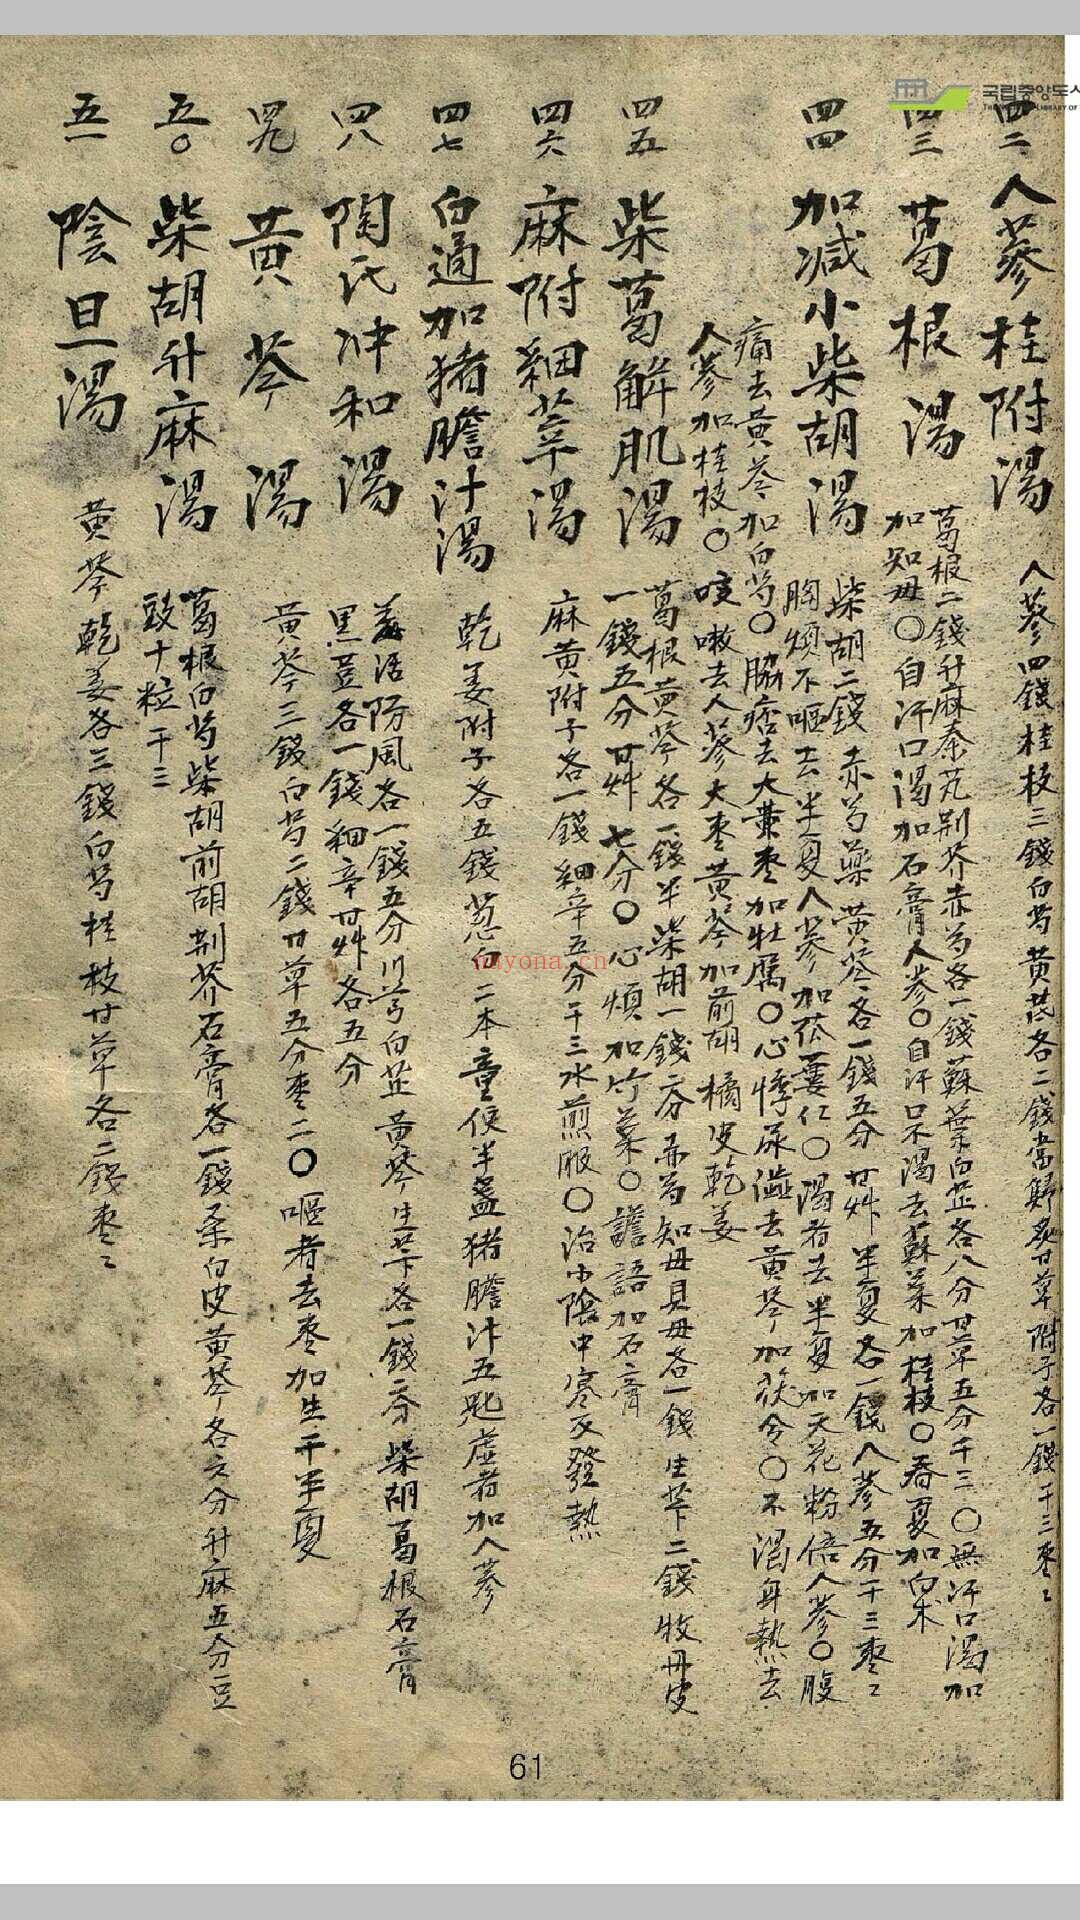 국립중앙도서
四二 人蔘桂附湯
人蔘四錢桂枝三錢白芍黃芪各二錢當歸炙甘草附子各一錢干三棗二
四三 葛根湯
葛根二錢升麻秦艽荊芥赤芍各一錢蘇葉白芷各八分甘草五分干三〇無汗口渴加
加知母〇自汗口渴加石膏人蔘〇自汗口不渴去蘇葉加桂枝〇春夏加白朮
四四 加减小柴胡湯
柴胡二錢赤芍藥黃芩各一錢五分甘艸半夏各一錢人蔘五分干三棗二
胸煩不嘔去半夏人蔘加苽蔞仁〇渴者去半夏加天花粉倍人蔘〇腹
痛去黃芩加白芍〇脇痞去大棗加牡厲〇心悸尿澁去黃芩加茯令〇不渴身熱去
人蔘加桂枝〇咳嗽去人蔘大棗黃芩加前胡橘皮乾姜
四五 柴葛解肌湯
葛根黃芩各一錢半柴胡一錢二分赤芍知母貝母各一錢生芐二錢牧丹皮
一錢五分甘艸七分〇心煩加竹葉〇譫語加石膏
四六 麻附細莘湯
麻黃附子各一錢細辛五分干三水煎服〇治小陰中寒反發熱
四七 白通加猪膽汁湯
乾姜附子各五錢葱白二本童便半盞猪膽汁五匙虛者加人蔘
四八 陶氏冲和湯
羗活防風各一錢五分川芎白芷黃芩生芐各一錢二分柴胡葛根石膏
黑豆各一錢細辛甘艸各五分
四九 黃芩湯
黃芩三錢白芍二錢甘草五分棗二〇嘔者去棗加生干半夏
五〇 柴胡升麻湯
葛根白芍柴胡前胡荊芥石膏各一錢桑白皮黃芩各六分升麻五分豆
豉十粒干三
五一 陰旦湯
黃芩乾姜各三錢白芍桂枝甘草各二錢棗二
nayona.cn
61